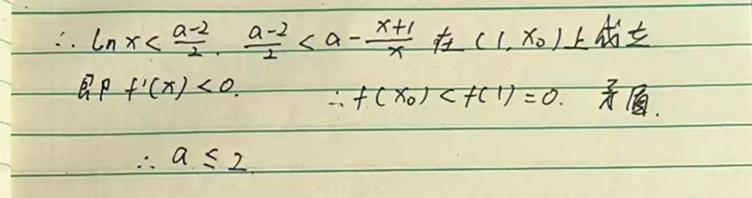 ∴ ln x < (a-2)/2. (a-2)/2 < a - (x+1)/x 在 (1, x₀) 上成立
即 f'(x) < 0. ∴ f(x₀) < f(1) = 0. 矛盾.
∴ a ≤ 2